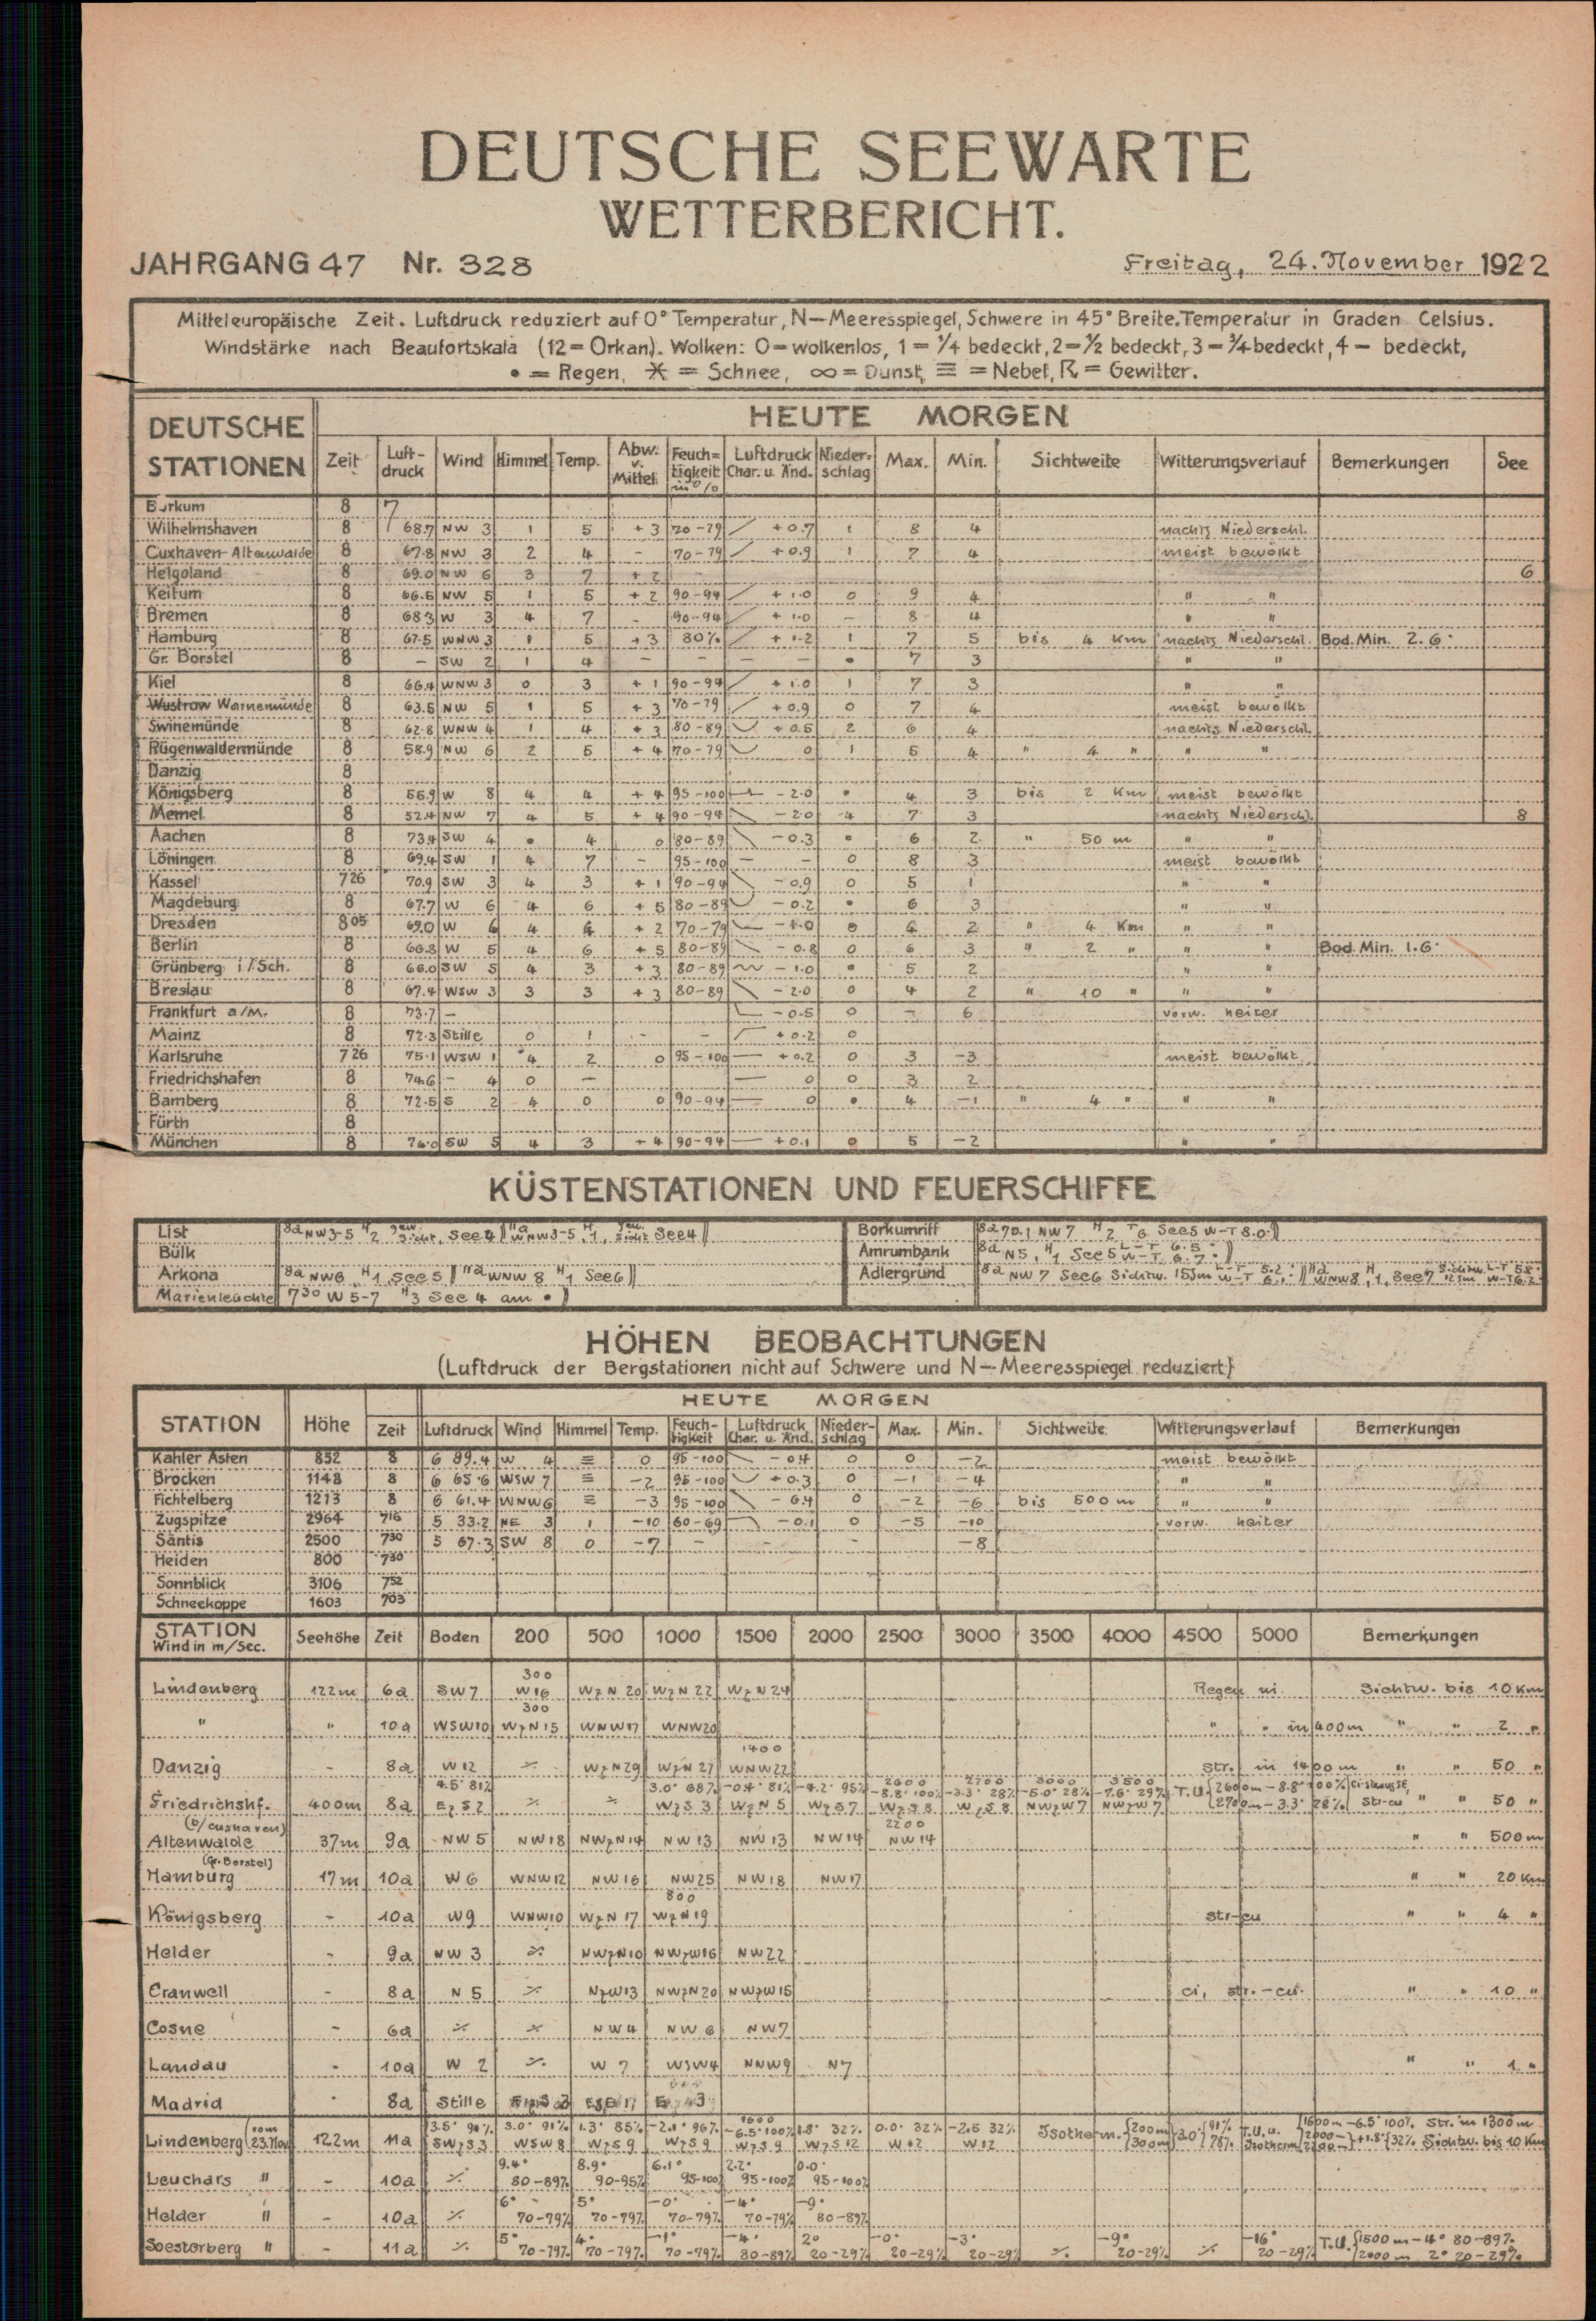 DEUTSCHE SEEWARTE
WETTERBERICHT.
JAHRGANG 47 Nr. 328 Freitag, 24. November 1922
Mitteleuropäische Zeit. Luftdruck reduziert auf 0° Temperatur, N—Meeresspiegel, Schwere in 45° Breite. Temperatur in Graden Celsius.
Windstärke nach Beaufortskala (12 = Orkan). Wolken: 0 = wolkenlos, 1 = ¼ bedeckt, 2 = ½ bedeckt, 3 = ¾ bedeckt, 4 — bedeckt,
• = Regen, = Schnee, ∞ = Dunst, ≡ = Nebel, = Gewitter.
DEUTSCHE STATIONEN HEUTE MORGEN
Zeit Luft-druck Wind Himmel Temp. Abw. v. Mittel Feuch=tigkeit in % Luftdruck Char. u. Änd. Nieder=schlag Max. Min. Sichtweite Witterungsverlauf Bemerkungen See
Borkum 8 7
Wilhelmshaven 8 68.7 NW 3 1 5 +3 70-79 +0.7 1 8 4 nachts Niederschl.
Cuxhaven-Altenwalde 8 67.8 NW 3 2 4 - 70-79 +0.9 1 7 4 meist bewölkt
Helgoland 8 69.0 NW 6 3 7 +2 - 6
Keitum 8 66.5 NW 5 1 5 +2 90-94 +1.0 0 9 4 " "
Bremen 8 68.3 W 3 4 7 - 90-94 +1.0 - 8 4 " "
Hamburg 8 67.5 WNW 3 1 5 +3 80% +1.2 1 7 5 bis 4 Km nachts Niederschl. Bod. Min. 2.6°
Gr. Borstel 8 - SW 2 1 4 - - - - • 7 3 " "
Kiel 8 66.4 WNW 3 0 3 +1 90-94 +1.0 1 7 3 " "
Wustrow Warnemünde 8 63.5 NW 5 1 5 +3 70-79 +0.9 0 7 4 meist bewölkt
Swinemünde 8 62.8 WNW 4 1 4 +3 80-89 +0.5 2 6 4 nachts Niederschl.
Rügenwaldermünde 8 58.9 NW 6 2 5 +4 70-79 0 1 5 4 " 4 " " "
Danzig 8
Königsberg 8 55.9 W 8 4 4 +4 95-100 -2.0 • 4 3 bis 2 Km meist bewölkt
Memel 8 52.4 NW 7 4 5 +4 90-94 -2.0 4 7 3 nachts Niedersch). 8
Aachen 8 73.4 SW 4 • 4 0 80-89 -0.3 • 6 2 " 50 m " "
Löningen 8 69.4 SW 1 4 7 - 95-100 - - 0 8 3 meist bewölkt
Kassel 7 26 70.9 SW 3 4 3 +1 90-94 -0.9 0 5 1 " "
Magdeburg 8 67.7 W 6 4 6 +5 80-89 -0.2 • 6 3 " "
Dresden 8 05 69.0 W 6 4 +2 70-79 -1.0 2 " 4 Km " "
Berlin 8 66.8 W 5 4 6 +5 80-89 -0.8 0 6 3 " 2 " " " Bod. Min. 1.6°
Grünberg i/Sch. 8 66.0 SW 5 4 3 +3 80-89 -1.0 • 5 2 " "
Breslau 8 67.4 WSW 3 3 3 +3 80-89 -2.0 0 4 2 " 10 " " "
Frankfurt a/M. 8 73.7 - -0.5 0 - 6 vorw. heiter
Mainz 8 72.3 Stille 0 1 - - +0.2 0
Karlsruhe 7 26 75.1 WSW 1 4 2 0 95-100 +0.2 0 3 -3 meist bewölkt
Friedrichshafen 8 74.6 - 4 0 - 0 0 3 2
Bamberg 8 72.5 S 2 4 0 0 90-94 0 • 4 -1 " 4 " " "
Fürth 8
München 8 SW 5 4 3 +4 90-94 +0.1 0 5 -2 " "
KÜSTENSTATIONEN UND FEUERSCHIFFE
List 8a NW 3-5 H 2 gew. Sicht, See 4 || 11a WNW 3-5, H 1, gew. Sicht See 4 ||
Bülk
Arkona 8a NW 6 H 1 See 5 || 11a WNW 8 H 1 See 6 ||
Marienleuchte 7 30 W 5-7 H 3 See 4 am • )
Borkumriff 8a 70.1 NW 7 H 2 T 6 See 5 W-T 8.0° ||
Amrumbank 8a N 5, H 1 See 5 L-T 6.5° W-T 6.7° ||
Adlergrund 8a NW 7 See 6 Sichtw. 15 Sm L-T 5.2° W-T 6.1° || 11a WNW 8, H 1, See 7 Sichtw. 12 Sm L-T 5.8° W-T 6.2
HÖHEN BEOBACHTUNGEN
(Luftdruck der Bergstationen nicht auf Schwere und N—Meeresspiegel reduziert)
HEUTE MORGEN
STATION Höhe Zeit Luftdruck Wind Himmel Temp. Feuch-tigkeit Luftdruck Char. u. Änd. Nieder-schlag Max. Min. Sichtweite Witterungsverlauf Bemerkungen
Kahler Asten 852 8 6 89.4 W 4 ≡ 0 95-100 -0.4 0 0 -2 meist bewölkt
Brocken 1148 8 6 65.6 WSW 7 ≡ -2 95-100 +0.3 0 -1 -4 " "
Fichtelberg 1213 8 6 61.4 WNW 6 ≡ -3 95-100 0 -2 -6 bis 500 m " "
Zugspitze 2964 7 16 5 33.2 NE 3 1 -10 60-69 -0.1 0 -5 -10 vorw. heiter
Säntis 2500 7 30 5 67.3 SW 8 0 -7 - - - -8
Heiden 800 7 30
Sonnblick 3106 7 52
Schneekoppe 1603 7 03
STATION Wind in m/Sec. Seehöhe Zeit Boden 200 500 1000 1500 2000 2500 3000 3500 4000 4500 5000 Bemerkungen
Lindenberg 122m 6a SW 7 300 W 16 WzN 20 WzN 22 WzN 24 Regen ni. Sichtw. bis 10 Km
" " 10a WSW 10 300 WzN 15 WNW 17 WNW 20 " " in 400 m " " 2 "
Danzig - 8a W 12 ٪ WzN 29 WzN 27 1400 WNW 22 str. in 1400 m " " 50 "
Friedrichshf. 400m 8a 4.5° 81% EzS 2 ٪ ٪ 3.0° 68% WzS 3 -0.4° 81% WzN 5 -4.2° 95% WzS 7 2600 -8.8° 100% WzS 8 2700 -3.3° 28% WzS 8 3000 -5.0° 28% NWzW 7 3500 -7.6° 29% NWzW 7 T.U. {2600m -8.8° 100% {2700m -3.3° 28% str-cu " " 50 "
(b/Cuxhaven) Altenwalde 37m 9a NW 5 NW 18 NWzN 14 NW 13 NW 13 NW 14 2200 NW 14 " " 500 m
(Gr. Borstel) Hamburg 17m 10a W 6 WNW 12 NW 16 NW 25 NW 18 NW 17 " " 20 Km
Königsberg - 10a W 9 WNW 10 WzN 17 800 WzN 19 str-cu " " 4 "
Helder - 9a NW 3 ٪ NWzN 10 NWzW 16 NW 22
Cranwell - 8a N 5 ٪ NzW 13 NWzN 20 NWzW 15 ci, str.-cu. " " 10 "
Cosne - 6a ٪ ٪ NW 4 NW 6 NW 7
Landau - 10a W 2 ٪ W 7 WSW 4 NNW 9 N 7 " " 1 "
Madrid - 8a Stille
Lindenberg (vom 23. Nov) 122m 11a 3.5° 90% SWzS 3 3.0° 91% WSW 8 1.3° 85% WzS 9 -2.1° 96% WzS 9 1600 -6.5° 100% WzS 9 1.8° 32% WzS 12 0.0° 32% W 12 -2.5 32% W 12 Isotherm. {200m {300m} 3.0° {91% {78% T.U. u. Isotherm {1600m -6.5° 100% str. in 1300m {2000- +1.8° {32% Sichtw. bis 10 Km
Leuchars " - 10a ٪ 9.4° 80-89% 8.9° 90-95% 6.1° 95-100% 2.2° 95-100% 0.0° 95-100%
Helder " - 10a ٪ 6° 70-79% 5° 70-79% -0° 70-79% -4° 70-79% -9° 80-89%
Soesterberg " - 11a ٪ 5° 70-79% 4° 70-79% -1° 70-79% -4° 80-89% 2° 20-29% -0° 20-29% -3° 20-29% ٪ -9° 20-29% ٪ -16° 20-29% T.U. {1500 m -4° 80-89% {2000 m 2° 20-29%